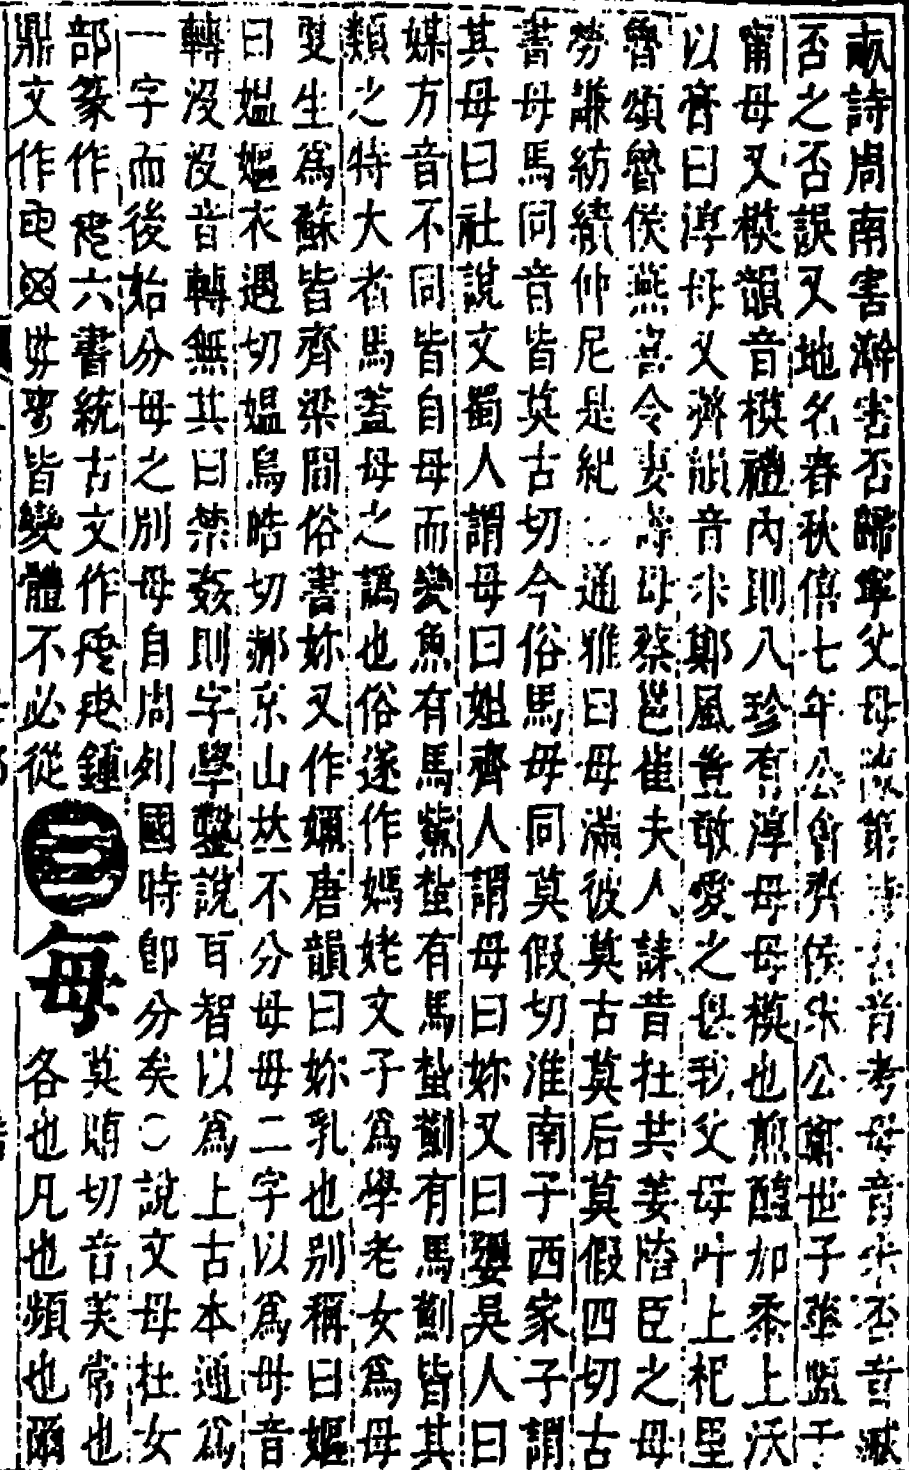 畝詩周南害澣害否歸寧父母陳第詩古音考母音米否音滅
否之否誤又地名春秋僖七年公會齊侯宋公鄭世子華盟于
甯母又模韻音模禮內則八珍有淳母母模也煎醢加黍上沃
以膏曰淳母又薺韻音米鄭風豈敢愛之畏我父母叶上杞里
魯頌魯侯燕喜令妻壽母蔡邕崔夫人誄昔在共姜陪臣之母
勞謙紡績仲尼是紀○通雅曰母滿彼莫古莫后莫假四切古
書母馬同音皆莫古切今俗馬母同莫假切淮南子西家子謂
其母曰社說文蜀人謂母曰姐齊人謂母曰妳又曰㜷吳人曰
媒方音不同皆自母而變魚有馬鮆蜇有馬蜇薊有馬薊皆其
類之特大者馬蓋母之譌也俗遂作媽姥文子爲學老女爲母
雙生爲蘇皆齊梁間俗書妳又作嬭唐韻曰妳乳也別稱曰嫗
曰媼嫗衣遇切媼烏皓切郝京山丛不分毋母二字以爲毋音
轉沒沒音轉無其曰禁姦則字學鑿說耳智以爲上古本通爲
一字而後始分母之別母自周列國時卽分矣○說文母在女
部篆作 六書統古文作 鍾
鼎文作 皆變體不必從
三
每
莫賄切音美常也
各也凡也頻也爾